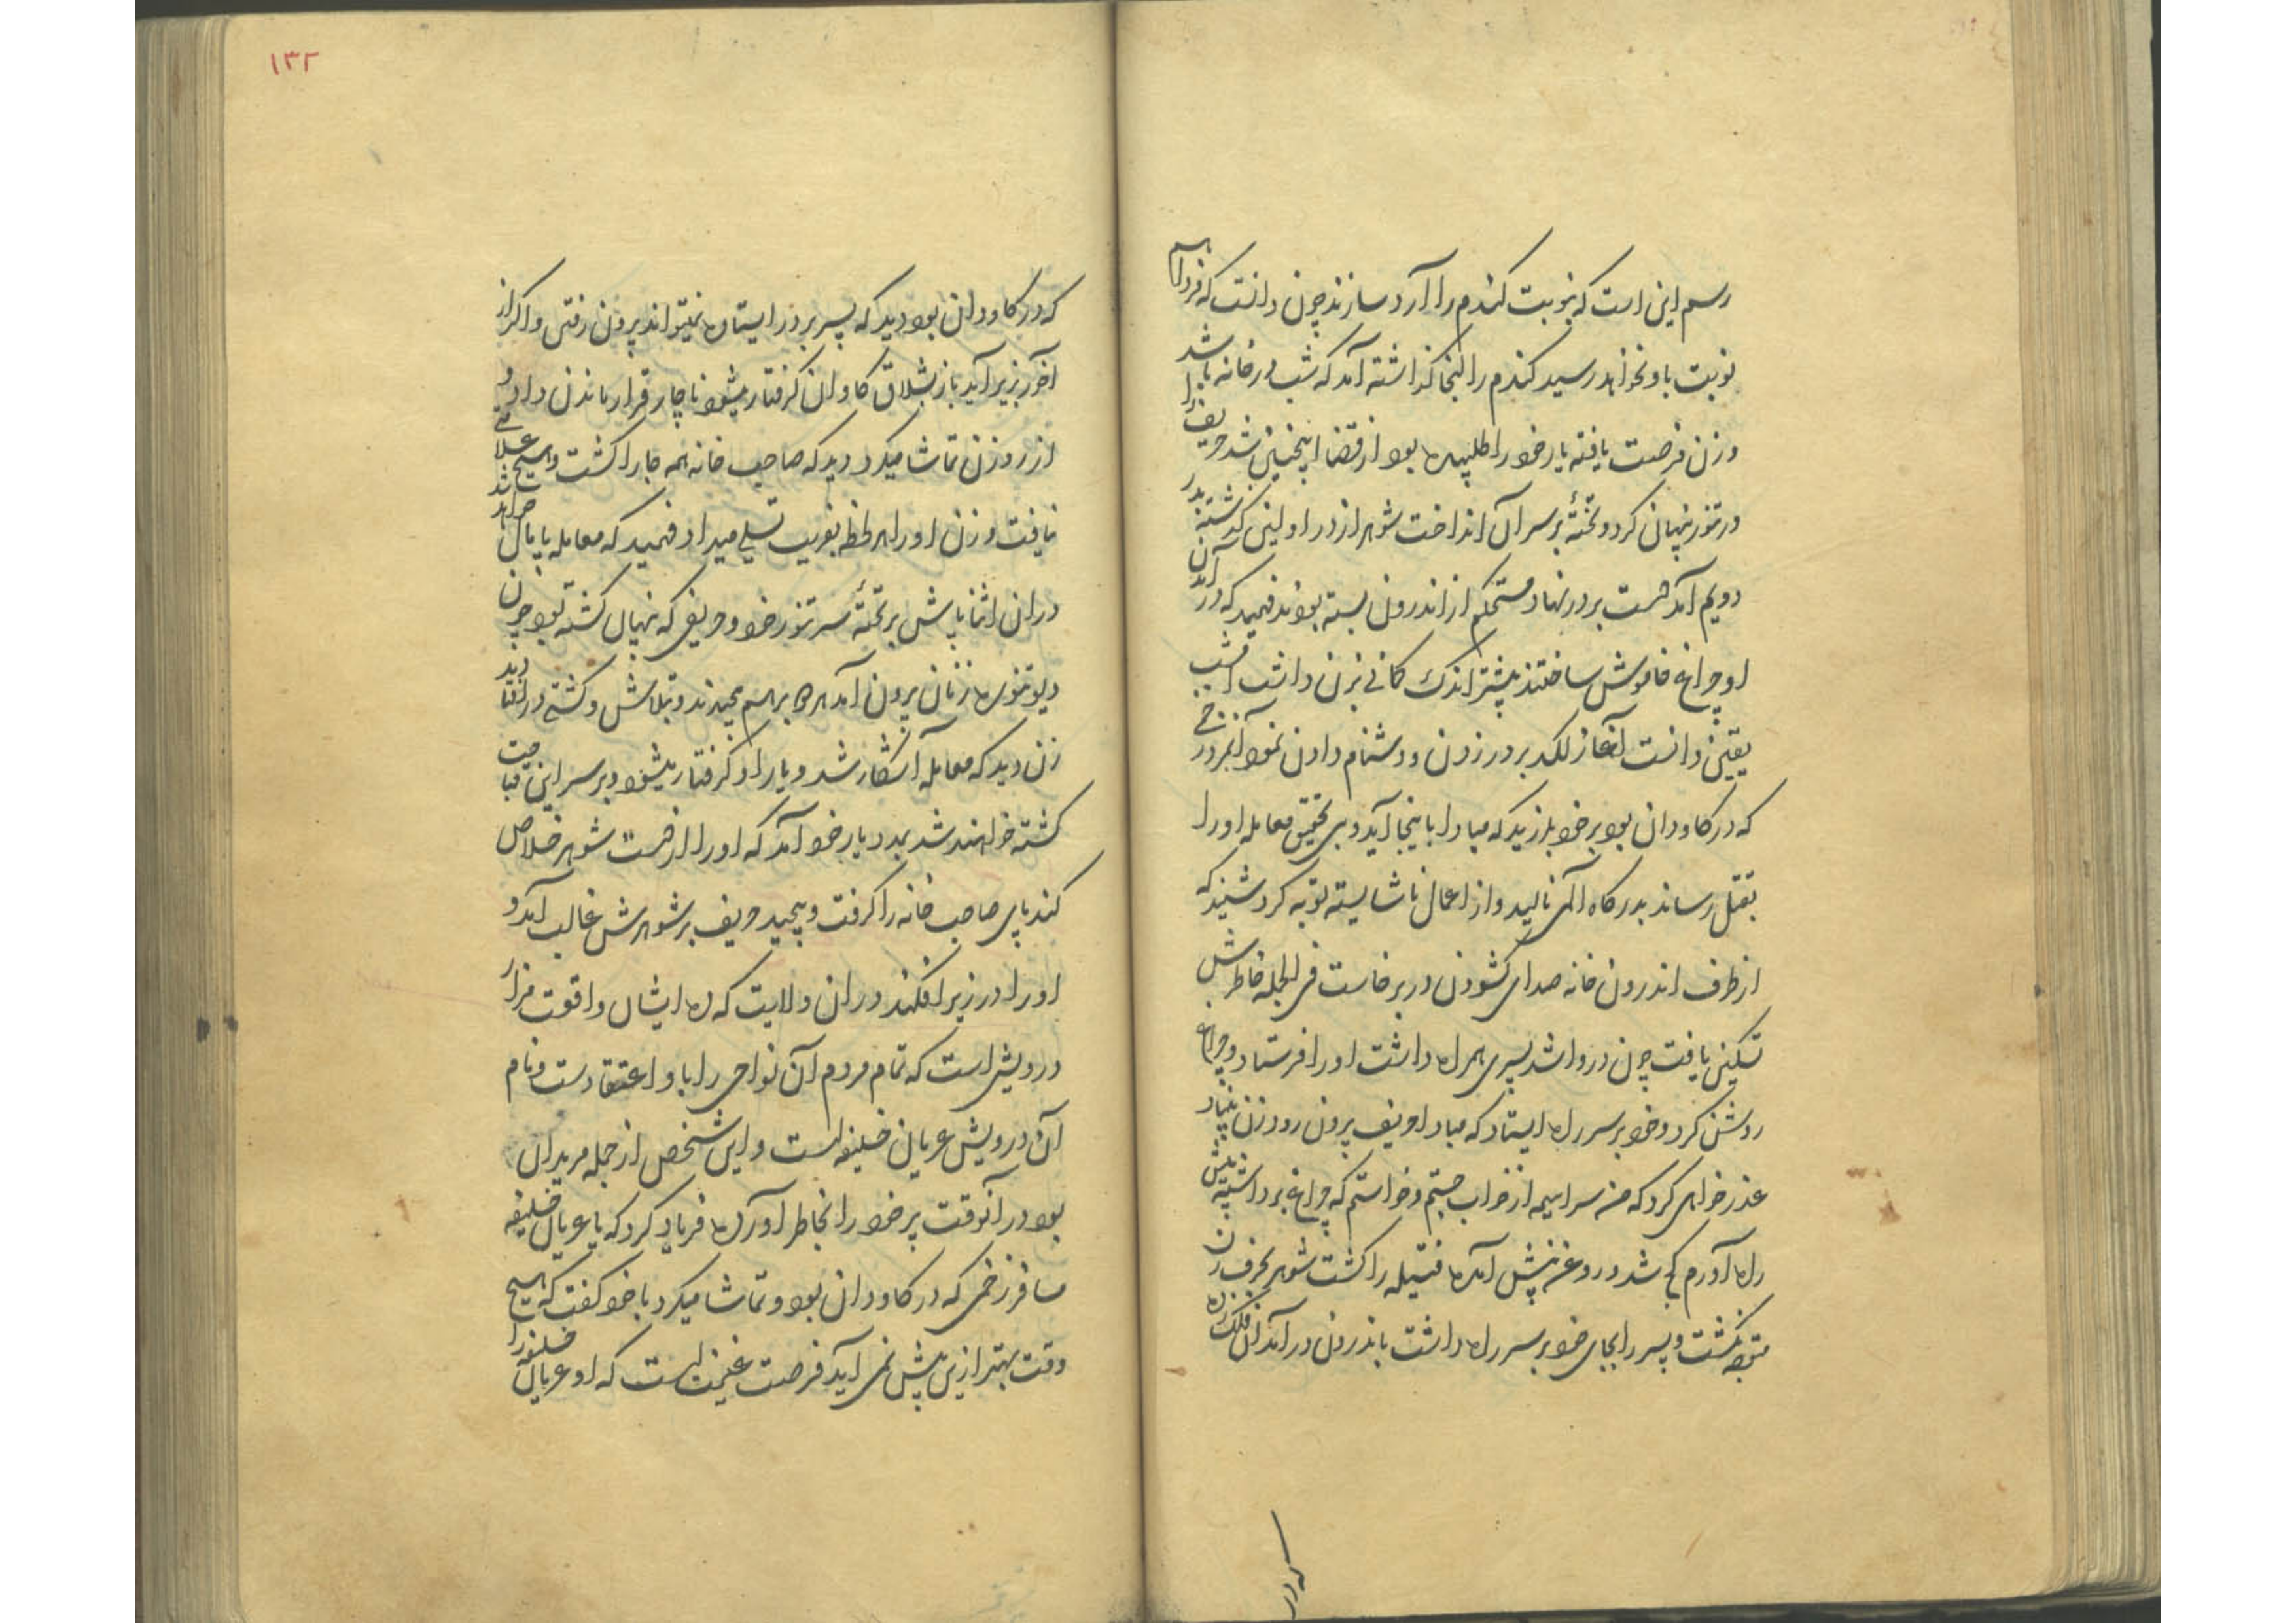 رسم این است که بنوبت کندم را آرد سازند چون دانست که فردا هم
نوبت باو نخواهد رسید کندم را انجا کذاشته آمد که شب در خانه باشد
وزن فرصت یافته یار خود را طلبیده بود از قضا اینچنین شد حریف را
در تنور پنهان کرد و تختهٔ بر سر آن انداخت شوهر از در اولین کذشته بدر
دویم آمد دست بر در نهاد مستحکم از اندرون بسته بودند فهمید که در آمدن
او چراغ خاموش ساختند پیشتر اندک کمانی بزن داشت امشب
یقین دانست آغاز لکد بر در زدن و دشنام دادن نمود آنمرد زخمی
که در کاودان بود بر خود بلرزید که مبادا باینجا آید و بی تحقیق معامله او را
بقتل رساند بدرکاه الهی نالید و از اعمال ناشایسته توبه کرد شنید که
از طرف اندرون خانه صدای کشودن در برخاست فی الجمله خاطرش
تسکین یافت چون در وا شد پسری همراه داشت او را فرستاد و چراغ
روشن کرد و خود بر سر راه ایستاد که مبادا حریف بیرون رود زن بنیاد
عذرخواهی کرد که من سراسیمه از خواب جستم و خواستم که چراغ برداشته پیش
راه آورم کج شد و روغن پیش آمده فتیله را کشت شوهر بحرف زن
متوجه نکشت و پسر را بجای خود بر سر راه داشت باندرون در آمد آن فلک زده
که در
۱۳۲
که در کاودان بود دید که پسر بر در ایستاده نمیتواند بیرون رفتن و اکر از
آخر بزیر آید باز بشلاق کاوان کرفتار میشود ناچار قرار ماندن داد و
از روزن تماشا میکرد دید که صاحب خانه همه جا را کشت و هیچ علامتی
نیافت و زن او را هر لحظه بفریب تسلی میداد فهمید که معامله پایمال خواهد ماند
در ان اثنا پایش بر تختهٔ سر تنور خورد و حریفی که نهان کشته بود چون
دیو تنوره زنان بیرون آمد هر دو بر هم پیچیدند و بتلاش و کشتی در افتادند
زن دید که معامله آشکار شد و یار او کرفتار میشود و بر سر این قباحت
کشته خواهند شد بمدد یار خود آمد که او را از دست شوهر خلاص
کند پای صاحب خانه را کرفت و پیچید حریف بر شوهرش غالب آمد و
او را در زیر افکند در ان ولایت که ده ایشان واقعست مزار
درویشی است که تمام مردم آن نواحی را باو اعتقادست و نام
آن درویش عریان خلیفه است و این شخص از جمله مریدان
بود در آنوقت پیر خود را بخاطر آورده فریاد کرد که یا عریان خلیفه
مسافر زخمی که در کاودان بود و تماشا میکرد با خود کفت که هیچ
وقت بهتر ازین پیش نمی آید فرصت غنیمت است که او عریان خلیفه را